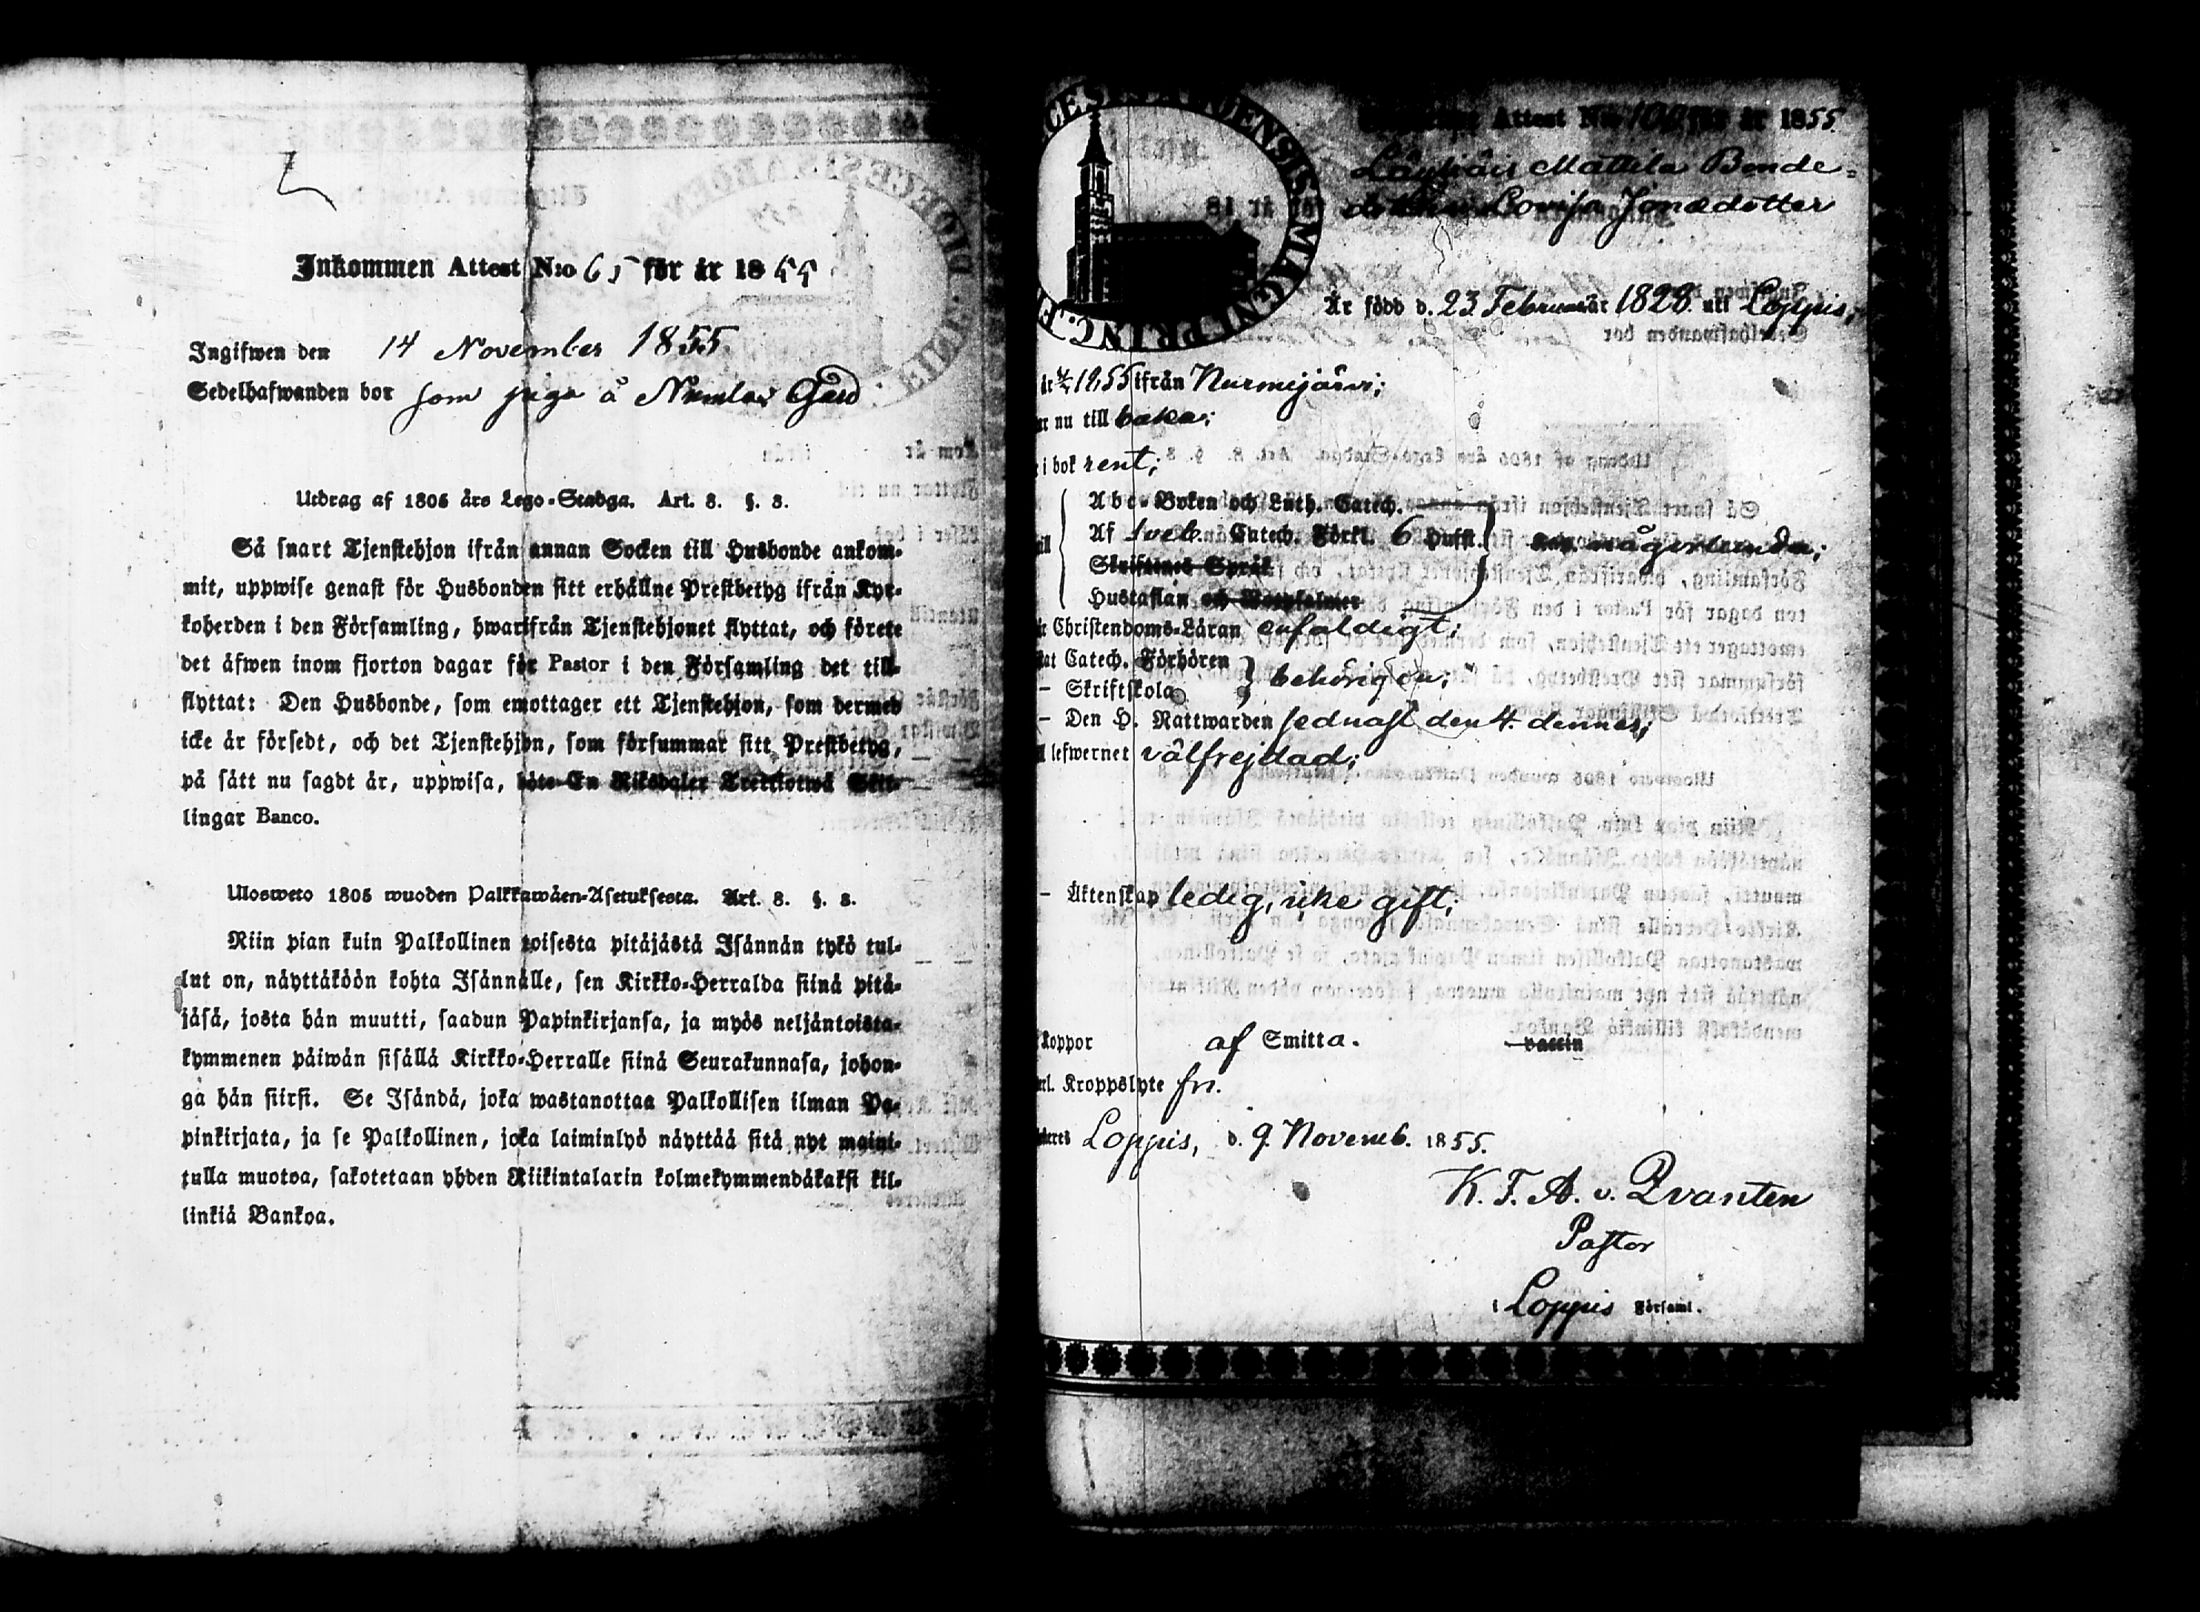 Inkommen Attest N:o 65 för år 1855
Ingifwen den 14 November 1855
Sedelhafwanden bor som piga å Numlax Gård
Utdrag af 1805 års Lego-Stadga. Art. 8. §. 8.
Så snart Tjenstehjon ifrån annan Socken till Husbonde ankom-
mit, uppwise genast för Husbonden sitt erhållne Prestbetyg ifrån Kyr-
koherden i den Församling, hwarifrån Tjenstehjonet flyttat, och förete
det äfwen inom fjorton dagar för Pastor i den Församling det till-
flyttat: Den Husbonde, som emottager ett Tjenstehjon, som dermed
icke är försedt, och det Tjenstehjon, som försummar sitt Prestbetyg,
på sätt nu sagdt är, uppwisa, böte En Riksdaler Trettiotwå Skil-
lingar Banco.
Ulosweto 1805 wuoden Palkkawäen-Asetuksesta. Art. 8. §. 8.
Niin pian kuin Palkollinen toisesta pitäjästä Isännän tykö tul-
lut on, näyttäköön kohta Isännälle, sen Kirkko-Herralda siinä pitä-
jäsä, josta hän muutti, saadun Papinkirjansa, ja myös neljäntoista-
kymmenen päiwän sisällä Kirkko-Herralle siinä Seurakunnasa, johon-
ga hän siirsi. Se Isändä, joka wastanottaa Palkollisen ilman Pa-
pinkirjata, ja se Palkollinen, joka laiminlyö näyttää sitä nyt maini-
tulla muotoa, sakotetaan yhden Riikintalarin kolmekymmendäkaksi kil-
linkiä Bankoa.
Attest N:o 100 för år 1855
Läyliäis Mattila Bonde-
dottren Lovisa Jonædotter
Är född d. 23 Februari år 1828 uti Loppis;
år 1855 ifrån Nurmijärvi;
nu till baka;
i bok rent;
Abc-Boken och Luth. Catech.
Af Sveb. Catech. Förkl. 6 Hufst. någorlunda;
Skriftenes Språk
Hustaflan och
Christendoms-Läran enfaldigt;
Catech. Förhören
– Skriftskola behörigen;
– Den H. Nattwarden sednast den 4. dennes;
lefwernet välfrejdad;
– Äktenskap ledig, icke gift;
koppor af Smitta. vaccin
Kroppslyte fri.
Loppis, d. 9. Novemb. 1855.
K. F. A. v. Qvanten
Pastor
i Loppis Församl.